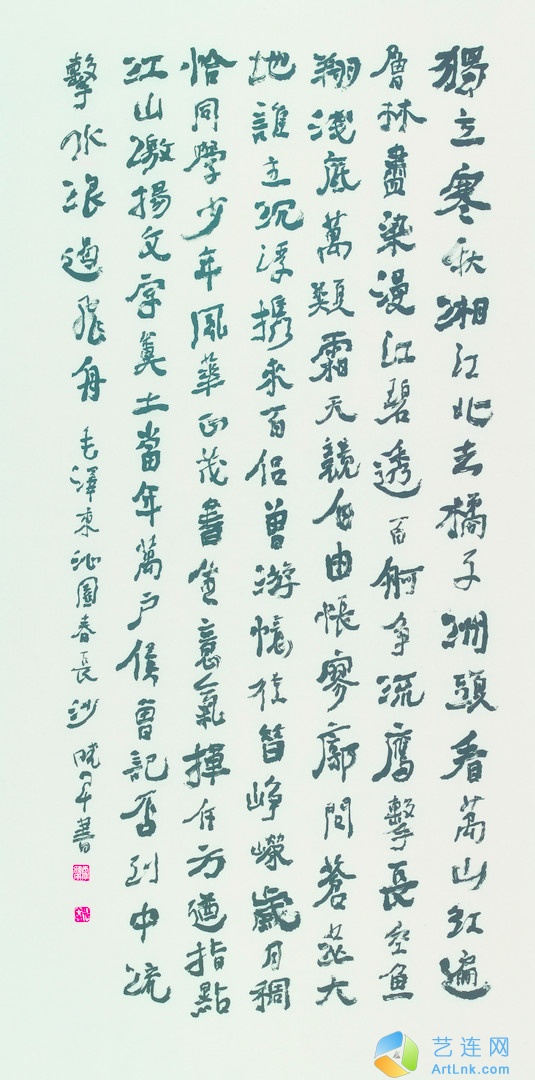 獨立寒秋湘江北去橘子洲頭看萬山紅遍
層林盡染漫江碧透百舸争流鷹擊長空魚
翔淺底萬類霜天競自由悵寥廓問蒼茫大
地誰主沉浮攜來百侶曾游憶往昔崢嶸歲月稠
恰同學少年風華正茂書生意氣揮斥方遒指點
江山激揚文字糞土當年萬戶侯曾記否到中流
擊水浪遏飛舟 毛澤東沁園春長沙 書
艺连网
ArtLnk.com